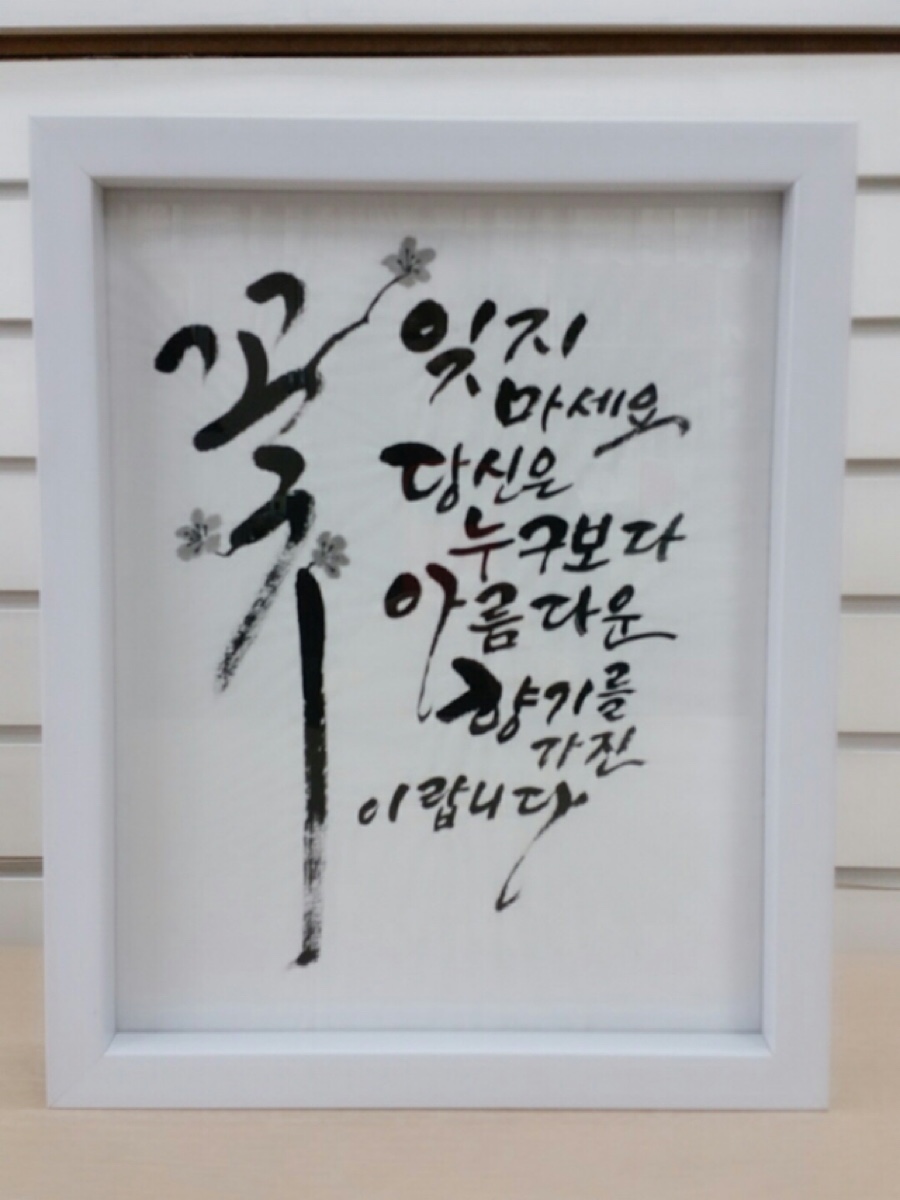 잊지
마세요
당신은
누구보다
아름다운
향기를
가진
꽃이랍니다